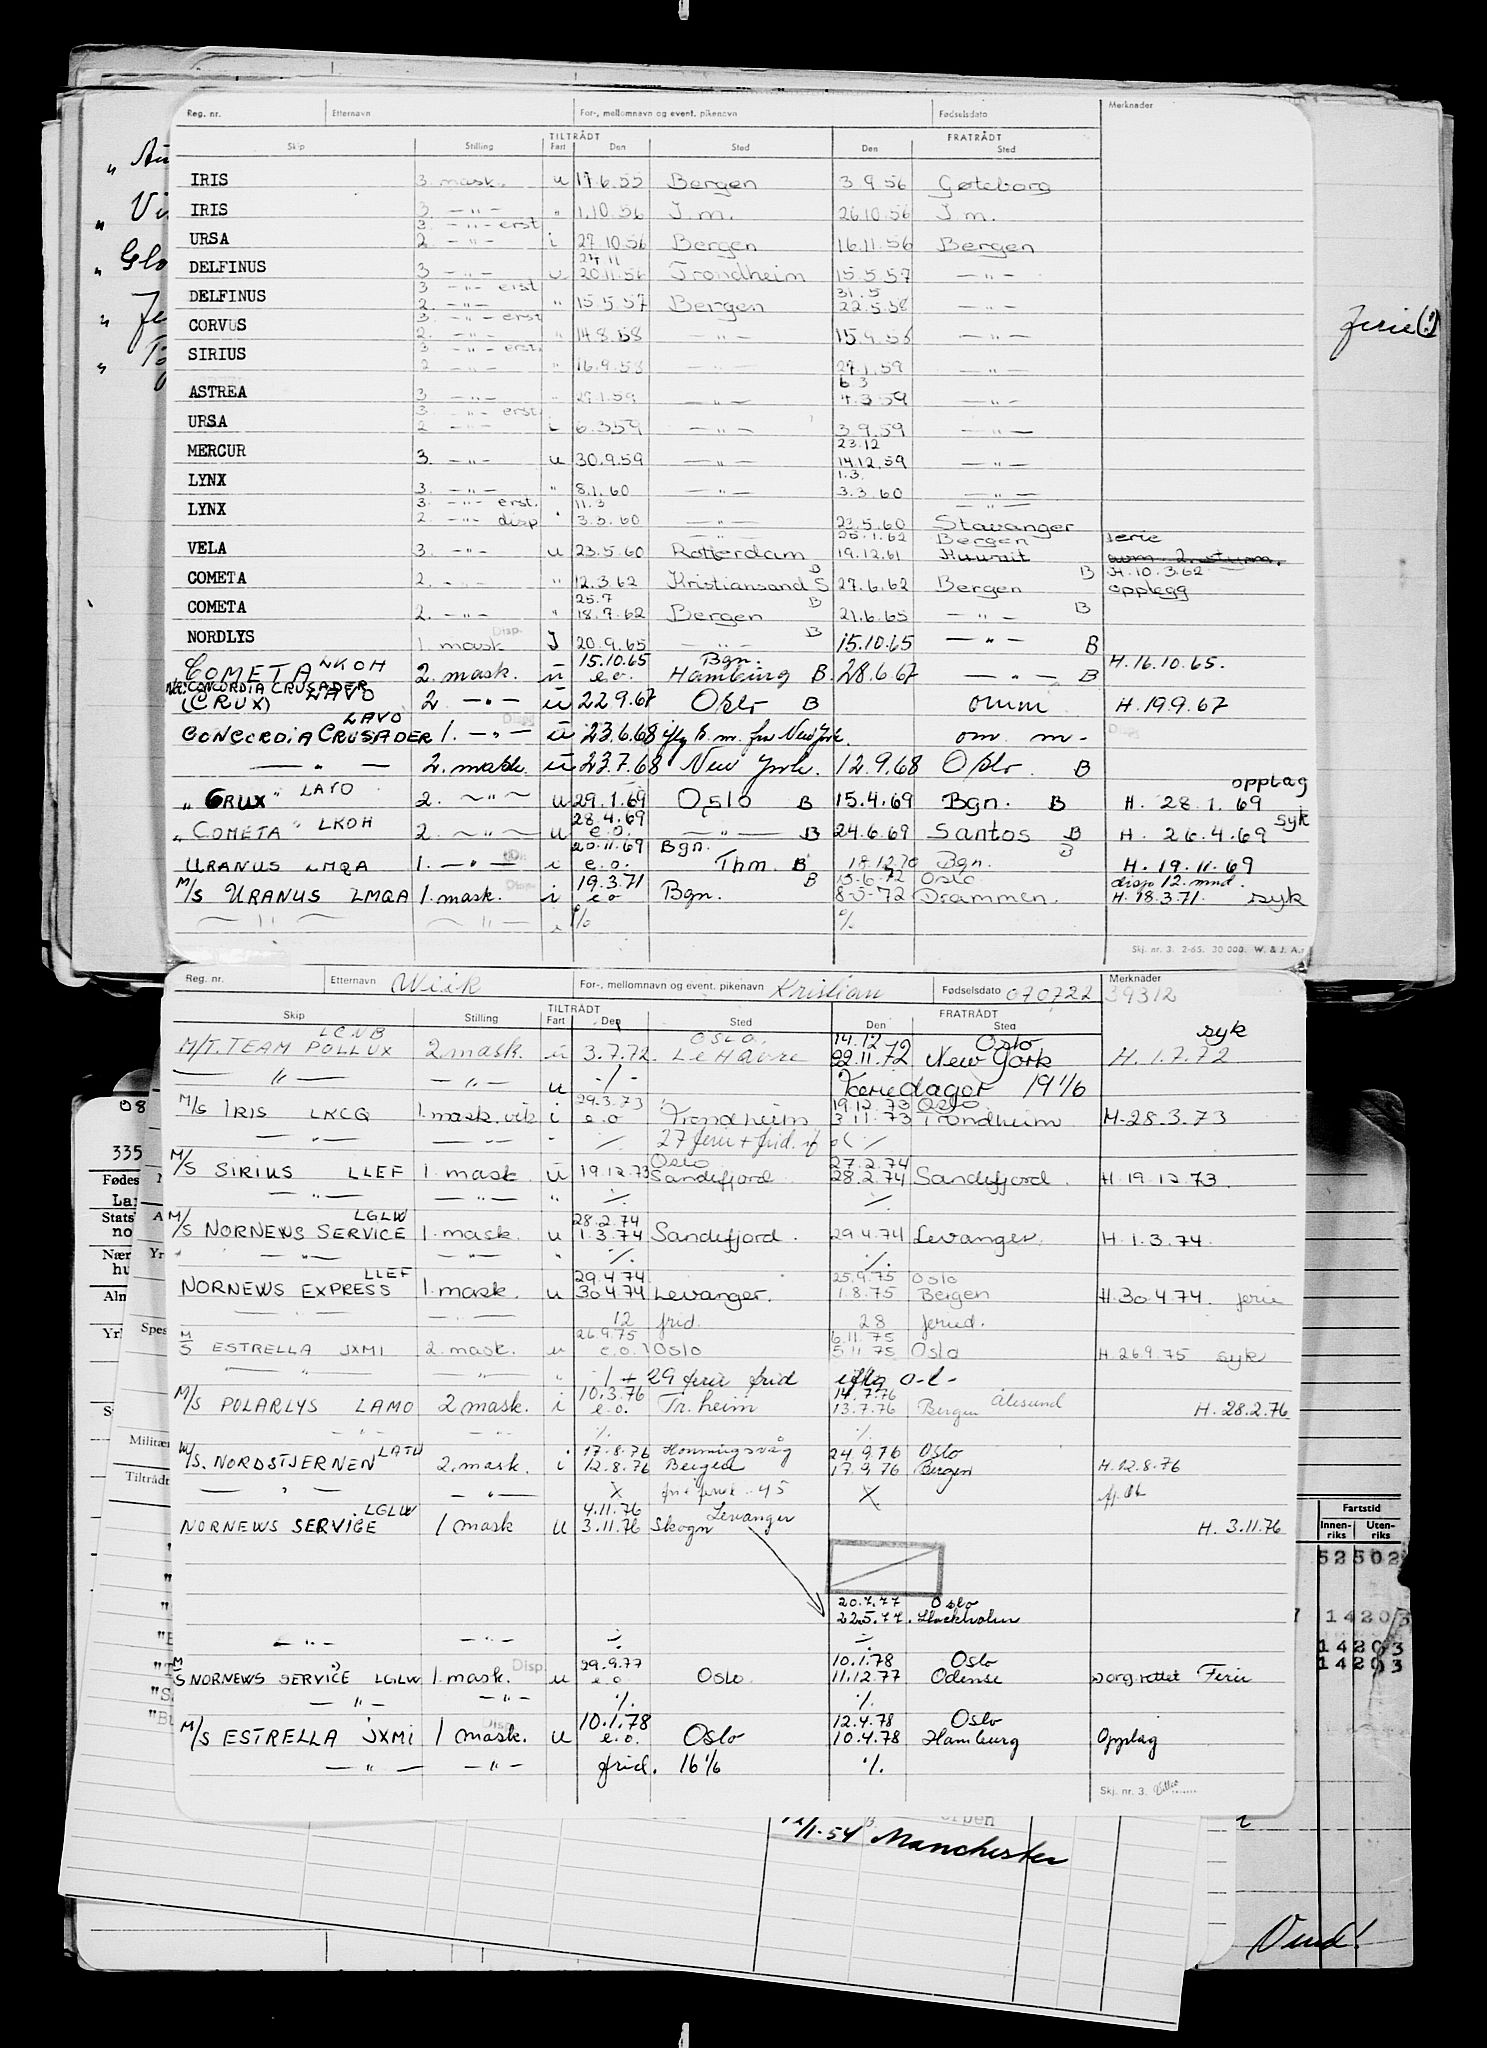 Reg. nr. Etternavn For-, mellomnavn og event. pikenavn Fødselsdato Merknader
TILTRÅDT FRATRÅDT
Skip Stilling Fart Den Sted Den Sted
IRIS 3 mask. u 17.6.55 Bergen 3.9.56 Gøteborg
IRIS 3. —"— " 1.10.56 I.m. 26.10.56 I.m.
3. —"— erst
URSA 2. —"— i 27.10.56 Bergen 16.11.56 Bergen
24.11
DELFINUS 3 —"— u 20.11.56 Trondheim 15.5.57 —"—
3 —"— erst 31.5
DELFINUS 2. —"— " 15.5.57 Bergen 22.5.58 —"—
3. —"— erst
CORVUS 2. —"— " 14.8.58 —"— 15.9.58 —"—
3. —"— erst.
SIRIUS 2 —"— " 16.9.58 —"— 27.1.59 —"—
6.3
ASTREA 3. —"— " 27.1.59 —"— 4.3.59 —"—
3. —"— erst.
URSA 2 —"— i 6.3.59 —"— 3.9.59 —"—
23.12
MERCUR 3. —"— u 30.9.59 —"— 14.12.59 —"—
1.3.
LYNX 3. —"— " 8.1.60 —"— 3.3.60 —"—
3. —"— erst. 11.3 —"—
LYNX 2. —"— disp " 3.3.60 —"— 23.5.60 Stavanger
25.1.62 Bergen ferie
VELA 3. —"— u 23.5.60 Rotterdam 19.12.61 Kuwait
B B H.10.3.62
COMETA 2. —"— " 12.3.62 Kristiansand S 27.6.62 Bergen opplegg
25.7 B B
COMETA 2. —"— " 18.9.62 Bergen 21.6.65 —"—
Disp. B
NORDLYS 1. mask J 20.9.65 —"— 15.10.65 —"— B
LKOH 15.10.65 Bgn. H.16.10.65.
COMETA 2. mask. u e.o. Hamburg B 28.6.67 —"— B
CONCORDIA CRUSADER
(CRUX) LAVO 2 —"— u 22.9.67 Oslo B omm H.19.9.67
LAVO Disp
CONCORDIA CRUSADER 1. —"— u 23.6.68 iflg B.m. fra New York. om. m-
—"— 2. mask. u 23.7.68 New York. 12.9.68 Oslo. B
opplag
"CRUX" LAVO 2. —"— u 29.1.69 Oslo B 15.4.69 Bgn. B H. 28.1.69
28.4.69 syk
"COMETA" LKOH 2. —"— u e.o. —"— B 24.6.69 Santos B H. 26.4.69
20.11.69 Bgn. B
URANUS LMQA 1. —"— i e.o. Thm. B 18.12.70 Bgn. H. 19.11.69
19.3.71 B 15.6.72 Oslo. disp 12. mnd.
M/S URANUS LMQA 1. mask. Disp i e.o Bgn. 8-5-72 Drammen. H. 18.3.71. syk
—"— —"— " % %
Skj. nr. 3. 2-65. 30 000. W. & J. A.
Reg. nr. Etternavn Wiik For-, mellomnavn og event. pikenavn Kristian Fødselsdato 070722 Merknader 39312
TILTRÅDT FRATRÅDT
Skip Stilling Fart Den Sted Den Sted
LCNB OSLO. 14.12 Oslo syk
M/T. TEAM POLLUX 2. mask. u 3.7.72. Le Havre 22.11.72 New York H. 1.7.72
—"— —"— u -/- Feriedager 19 1/6
29.3.73 19.12.73 Oslo
M/S IRIS LKCQ 1. mask. vik i e.o Trondheim 3.11.73 Trondheim H-28.3.73
—"— —"— ·/. 27 ferie + frid. if ol ·/.
Oslo 27.2.74
M/S SIRIUS LLEF 1. mask. u 19.12.73 Sandefjord 28.2.74 Sandefjord. H. 19.12.73.
—"— —"— " ·/. ·/.
LGLW 28.2.74
M/S NORNEWS SERVICE 1. mask. u 1.3.74 Sandefjord. 29.4.74 Levanger. H. 1.3.74.
" —"— —"— " ·/. ·/.
LLEF 29.4.74 25.9.75 Oslo
NORNEWS EXPRESS 1. mask. u 30.4.74 Levanger. 1.8.75 Bergen H. 30.4.74. ferie
—"— 12 frid. 28 feried.
26.9.75 6.11.75
M/S ESTRELLA JXMI 2. mask. u e.o. Oslo 5.11.75 Oslo H. 26.9.75 syk
—"— —"— " -1 + 29 ferie frid iflg o-l-
10.3.76 14.7.76
M/S POLARLYS LAMO 2 mask. i e.o. Tr.heim 13.7.76 Bergen Ålesund H. 28.2.76
—"— —"— ·/. ·/.
LATU 17.8.76 Honningsvåg 24.9.76 Oslo
M/S. NORDSTJERNEN 2. mask. i 12.8.76 Bergen 17.9.76 Bergen H. 12.8.76
—"— —"— X 45 X
LGLW 4.11.76 Levanger
NORNEWS SERVICE 1 mask u 3.11.76 Skogn H. 3.11.76
20.7.77 Oslo
22.5.77. Stockholm
—"— —"— ·/. ·/.
29.9.77 10.1.78 Oslo
M/S NORNEWS SERVICE LGLW 1. mask. Disp. u e.o. Oslo. 11.12.77 Odense Ferie
—"— —"— ·/. ·/.
10.1.78 12.4.78 Oslo
M/S ESTRELLA JXMI 1 mask. Disp u e.o. Oslo 10.4.78 Hamburg Opplag
—"— —"— frid. 16 1/6 ·/.
Skj. nr. 3.
Ferie(!)
335
Fødes
Stats
no
Militær
Tiltrådt
Fartstid
Innen-riks Uten-riks
52502
14203
14203
14203
12/1-54 Manchester
Vend!